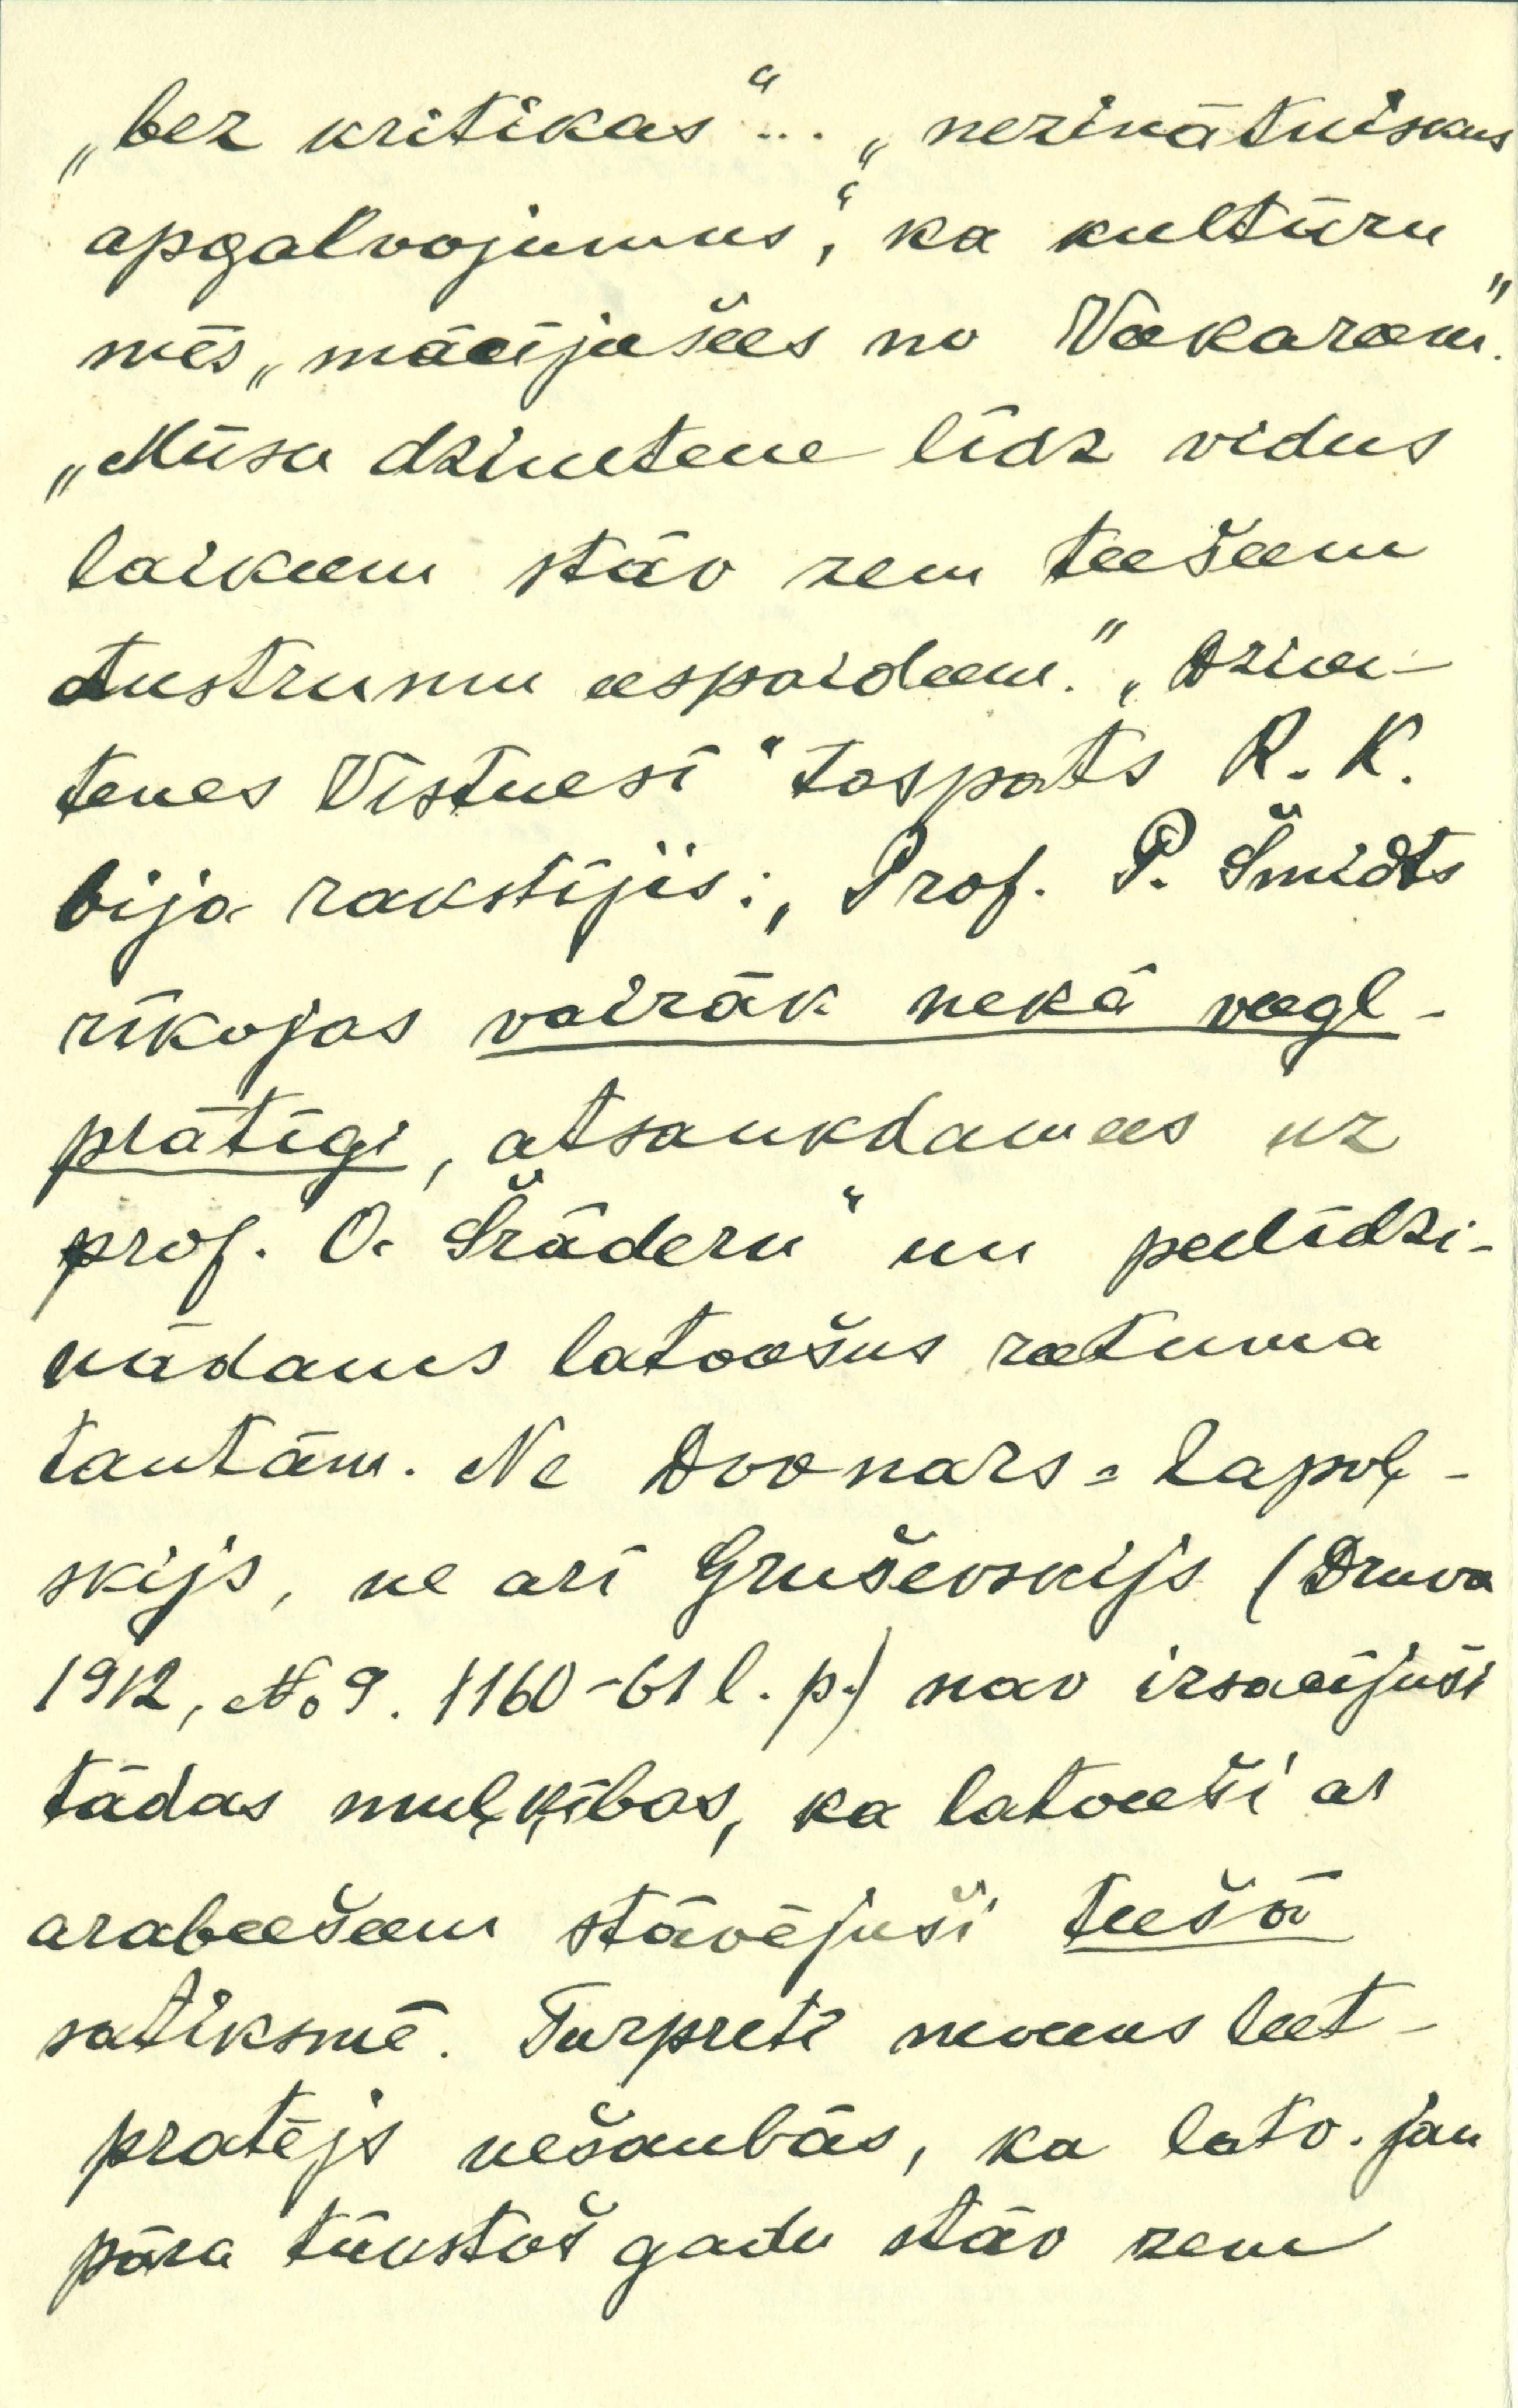 „bez kritikas“... „nezinātniskus
apgalvojumus“, ka kultūru
mēs „mācījušees no Vakareem“.
„Mūsu dzimtene līdz vidus
laikeem stāv zem teešeem
austrumu eespaideem.“ „Dzim-
tenes Vēstnesī“ tas pats R. K.
bija rakstījis: „Prof. P. Šmidts
rīkojas vairāk nekā veegl-
prātīgi, atsaukdamees uz
prof. O. Šrāderu“ un peelīdzi-
nādams latveešus reetuma
tautām. Ne Dovnars-Zapoļ-
skijs, ne arī Gruševskijs (Druva
1912, № 9. 1160-61 l. p.) nav izsacījuši
tādas muļķības, ka latveeši ar
arabeešeem stāvējuši teešā
satiksmē. Turpretī neveens leet-
pratējs nešaubās, ka latv. jau
pāra tūkstoš gadu stāv zem